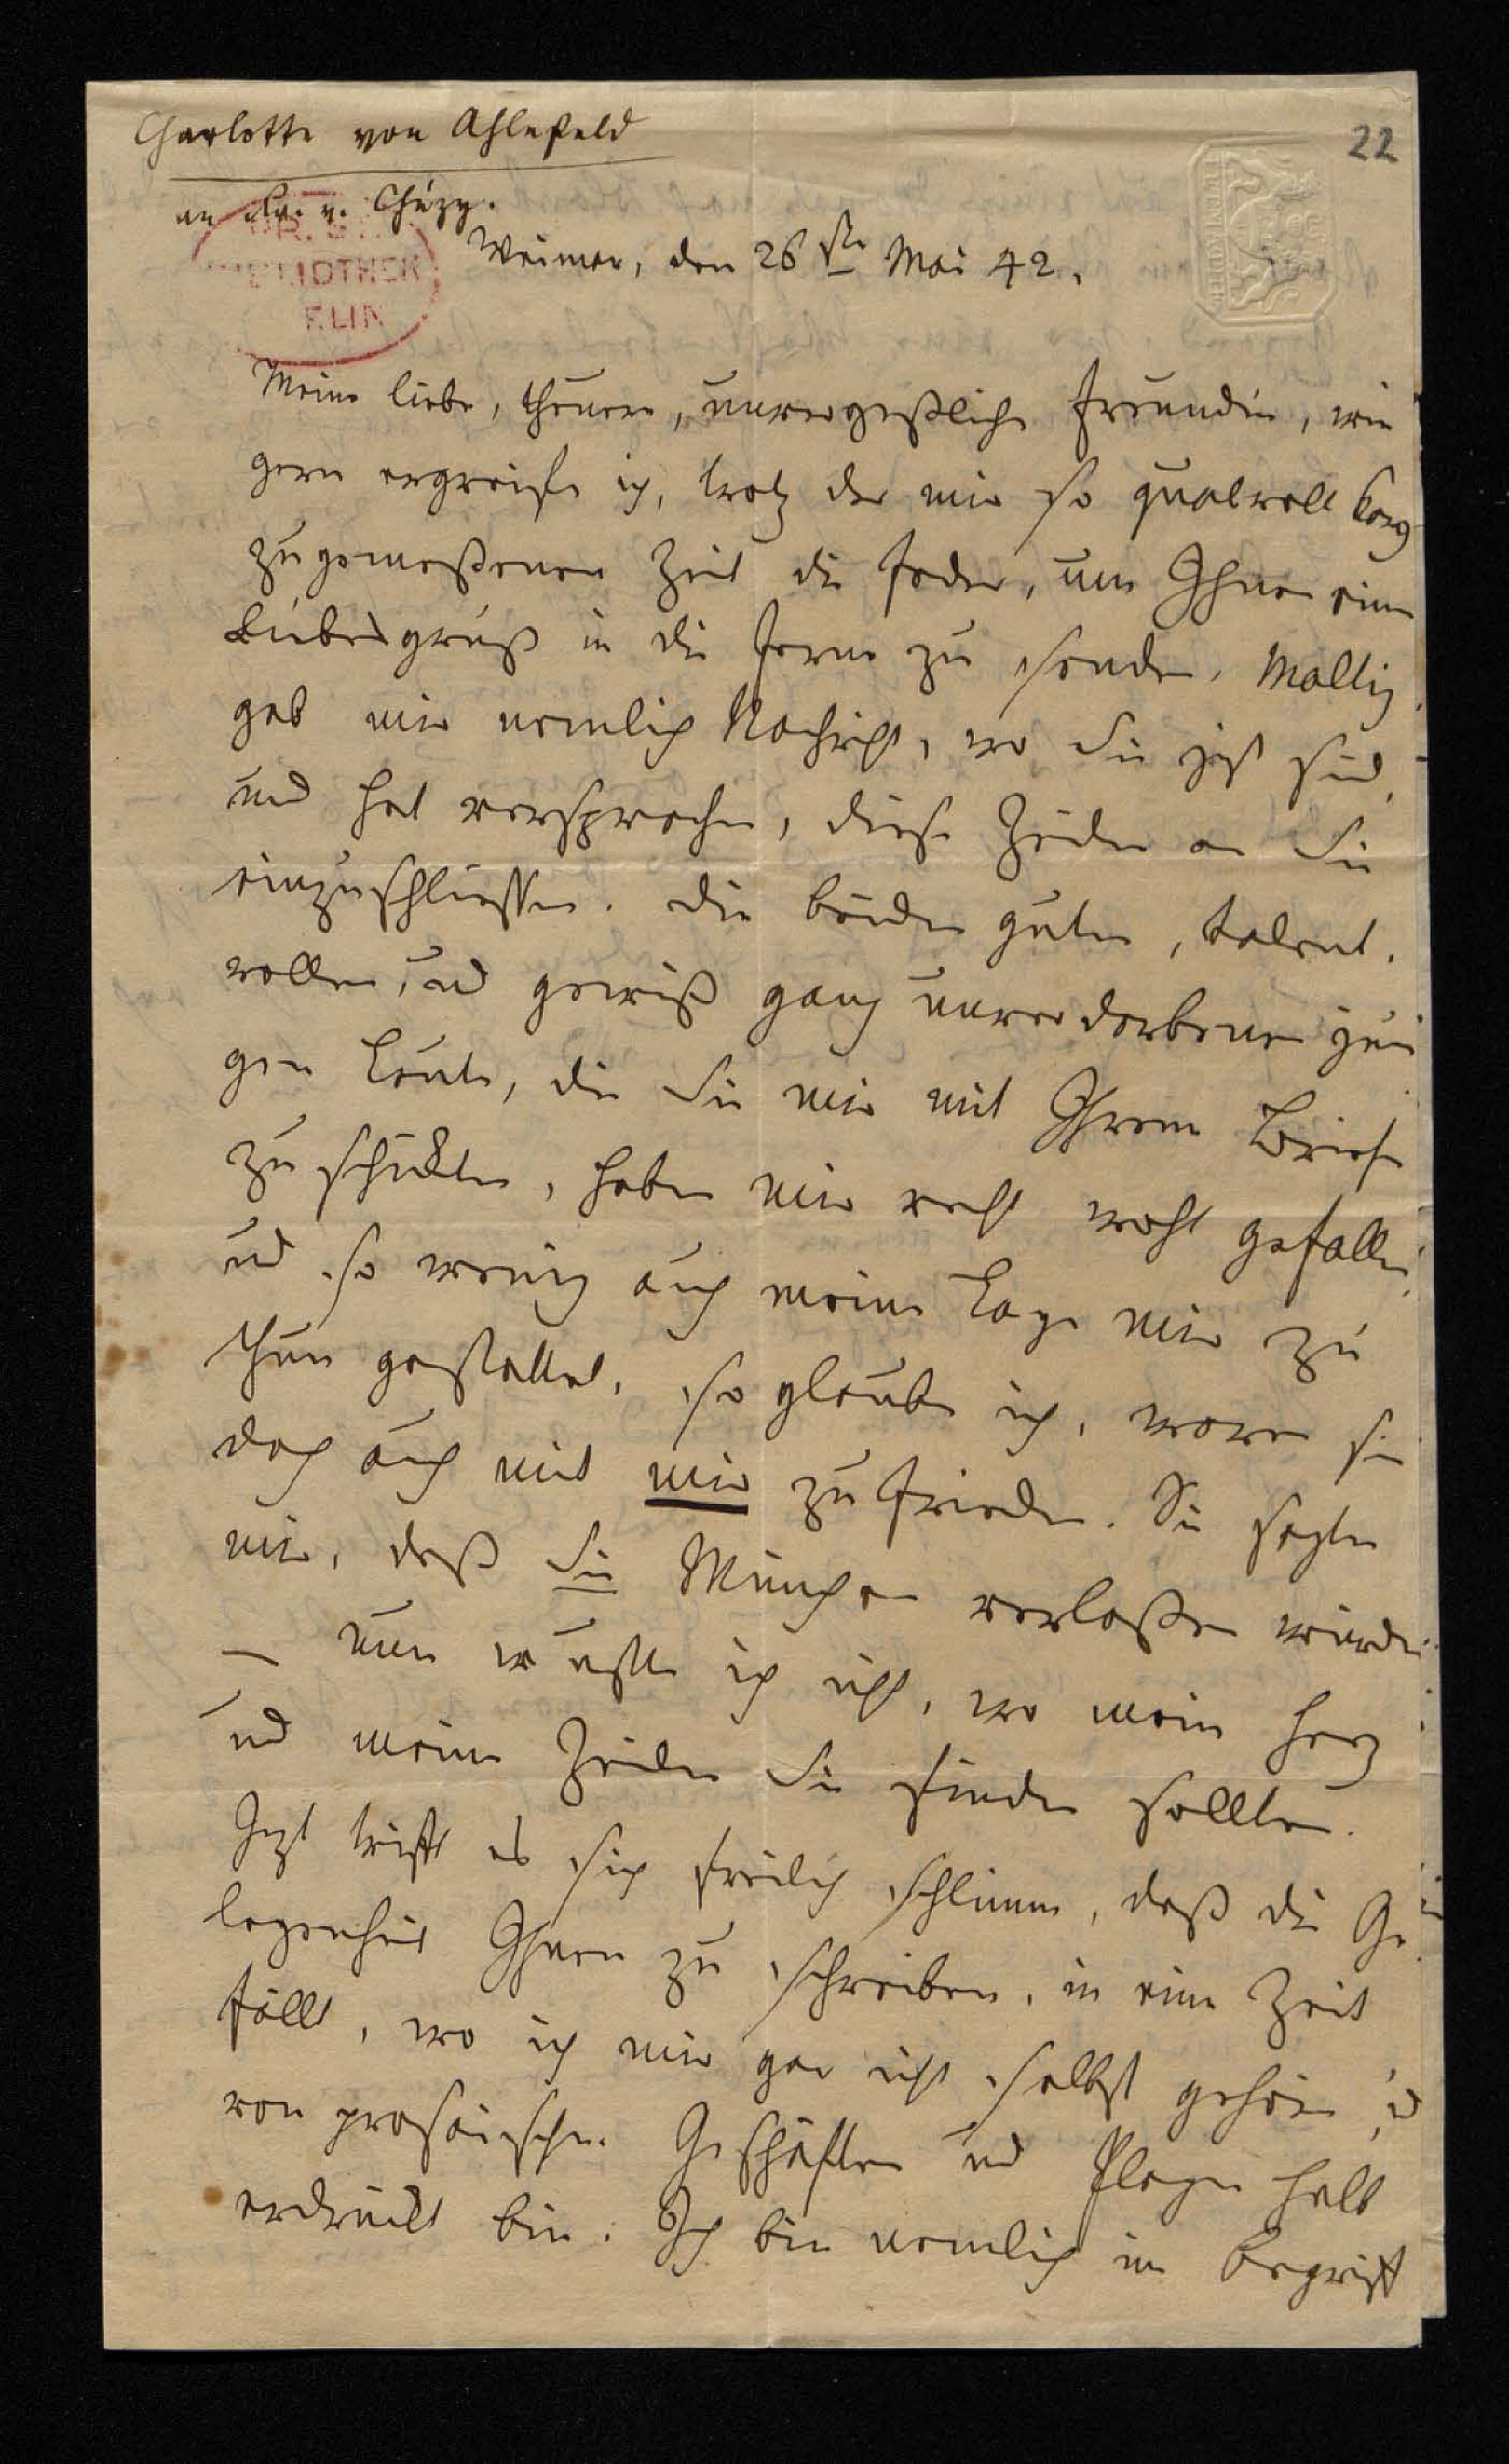 Charlotte von Ahlefeld
22
an Fr. v. Chézy.
PR. S
BIBLIOTHEK
BERLIN
Weimar, den 26ste Mai 42.
Meine liebe, theure, unvergeßliche Freundin, wie
gern ergreife ich, trotz der mir so qualvoll karg
zugemeßenen Zeit die Feder, um Ihnen einen
Liebesgruß in die Ferne zu senden. Maltiz
gab mir nemlich Nachricht, wo Sie jezt sind,
und hat versprochen, diese Zeilen an Sie
einzuschliessen. Die beiden guten, talent-
vollen, und gewiß ganz unverdorbenen jun
gen Leute, die Sie mir mit Ihrem Briefe
zu schickten, haben mir recht wohl gefallen,
und so wenig auch meine Lage mir zu
thun gestattet, so glaube ich, waren sie
doch auch mit mir zufrieden. Sie sagten
mir, daß Sie München verlaßen würden
– nun wußte ich nicht, wo mein Herz
und meine Zeilen Sie finden sollten.
Jezt trifft es sich freilich schlimm, daß die Ge
legenheit Ihnen zu schreiben, in eine Zeit
fällt, wo ich mir gar nicht selbst gehöre und
von prosaischen Geschäften und Plagen halb
erdrückt bin. Ich bin nemlich im Begriff